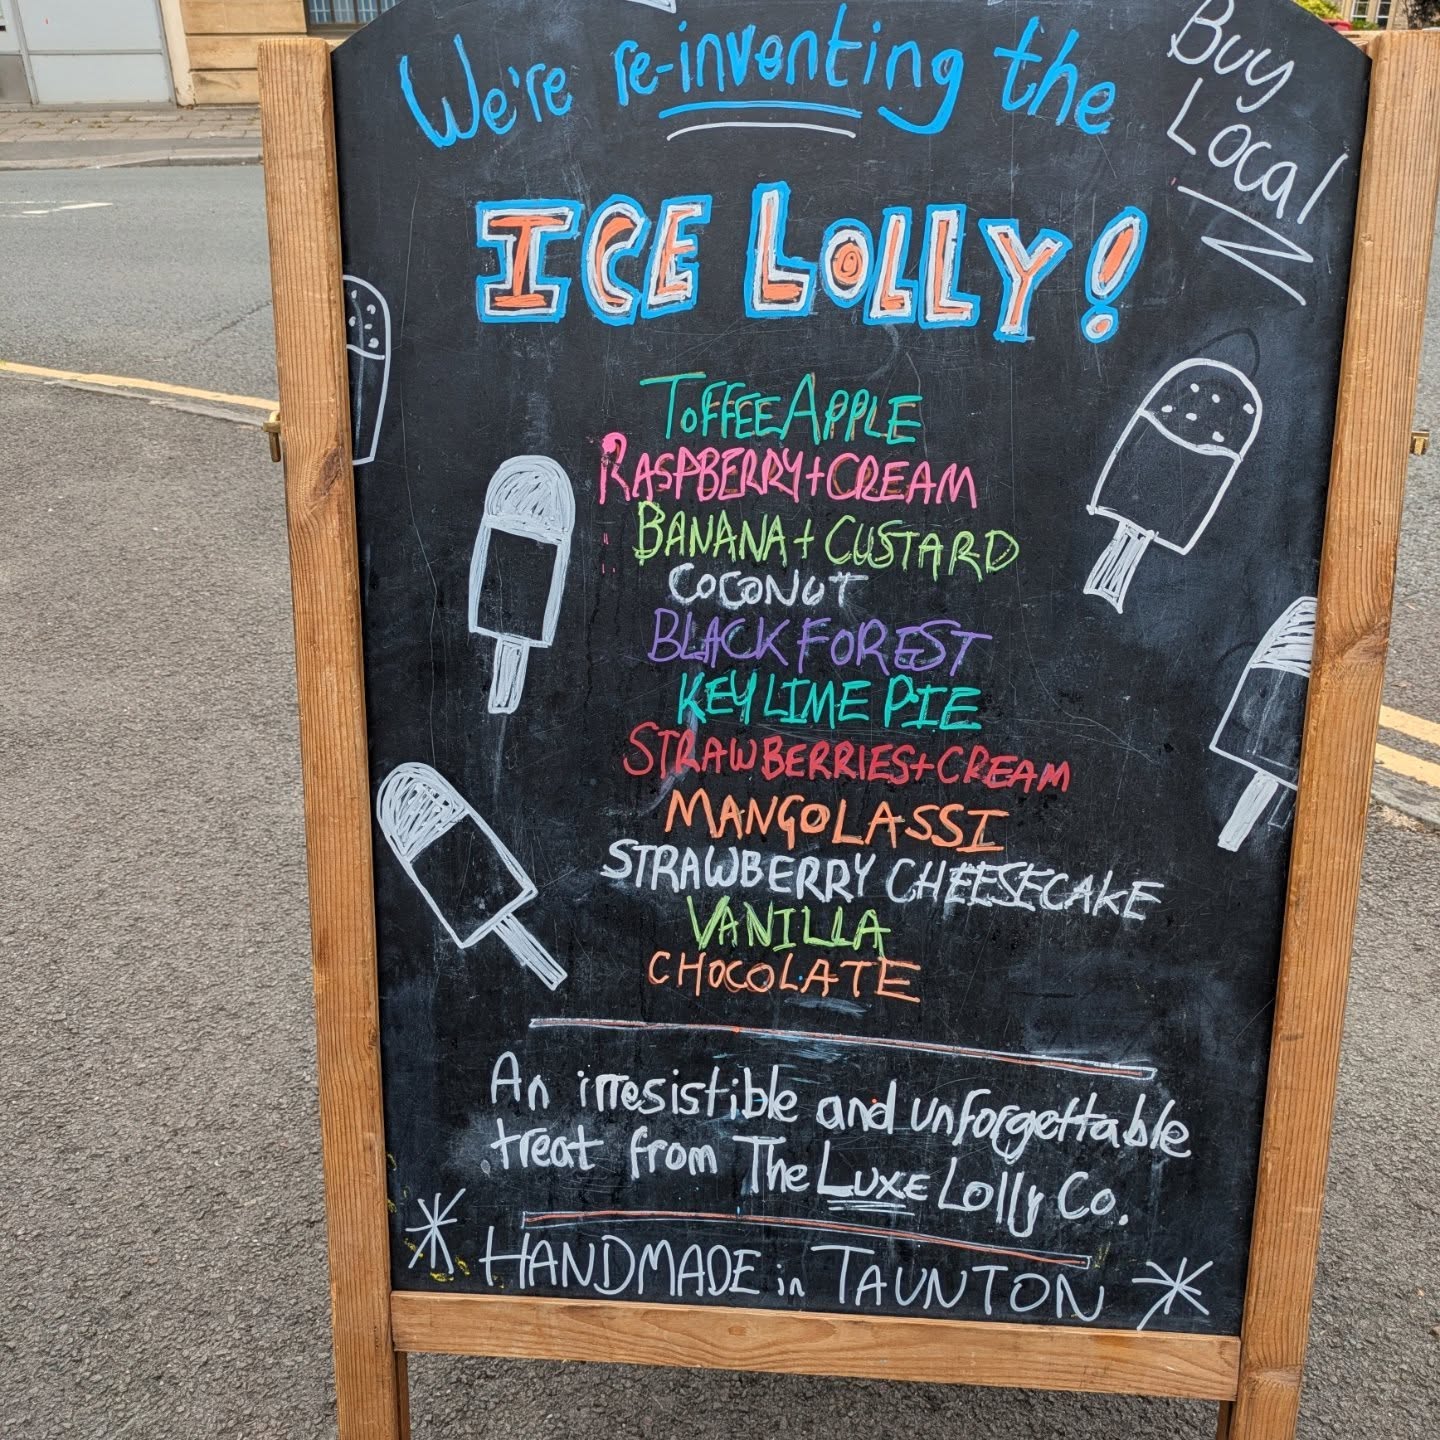 We're re-inventing the
Buy
Local
ICE LOLLY!
TOFFEE APPLE
RASPBERRY + CREAM
BANANA + CUSTARD
COCONUT
BLACK FOREST
KEY LIME PIE
STRAWBERRIES + CREAM
MANGO LASSI
STRAWBERRY CHEESECAKE
VANILLA
CHOCOLATE
An irresistible and unforgettable
treat from The LUXE Lolly Co.
HANDMADE in TAUNTON